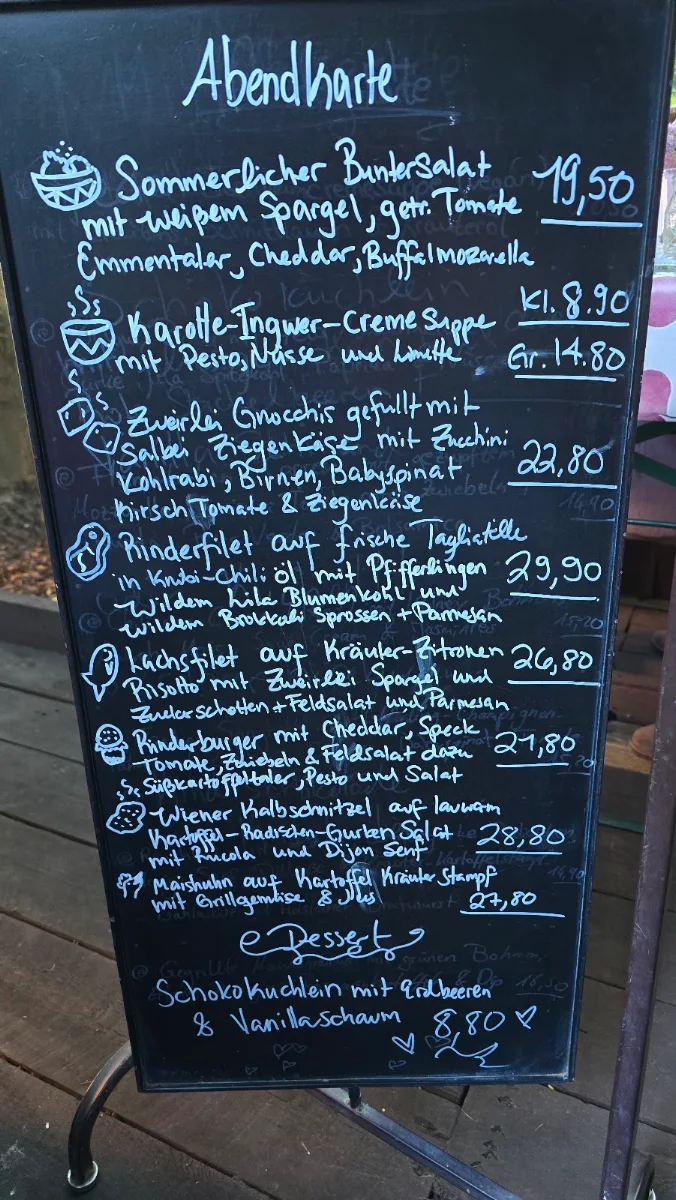 Abendkarte
Sommerlicher Buntersalat 19,50
mit weißem Spargel, getr. Tomate
Emmentaler, Cheddar, Buffalmozarella
Karotte-Ingwer-Creme Suppe Kl. 8.90
mit Pesto, Nüsse und Limette Gr. 14.80
Zweirlei Gnocchis gefüllt mit
Salbei Ziegenkäse mit Zucchini
Kohlrabi, Birnen, Babyspinat 22,80
Kirsch Tomate & Ziegenkäse
Rinderfilet auf frische Tagliatelle
in Knobi-Chili öl mit Pfifferlingen 29,90
Wildem lila Blumenkohl und
wildem Brokkoli Sprossen + Parmesan
Lachsfilet auf Kräuter-Zitronen 26,80
Risotto mit Zweirlei Spargel und
Zuckerschotten + Feldsalat und Parmesan
Rinderburger mit Cheddar, Speck
Tomate, Zwiebeln & Feldsalat dazu 21,80
Süßkartoffeltaler, Pesto und Salat
Wiener Kalbschnitzel auf lauwarm
Kartoffel-Radischen-Gurken Salat 28,80
mit Rucola und Dijon Senf
Maishuhn auf Kartoffel Kräuter Stampf
mit Grillgemüse & Jus 27,80
Dessert
Schokoküchlein mit Erdbeeren
& Vanillaschaum 8,80